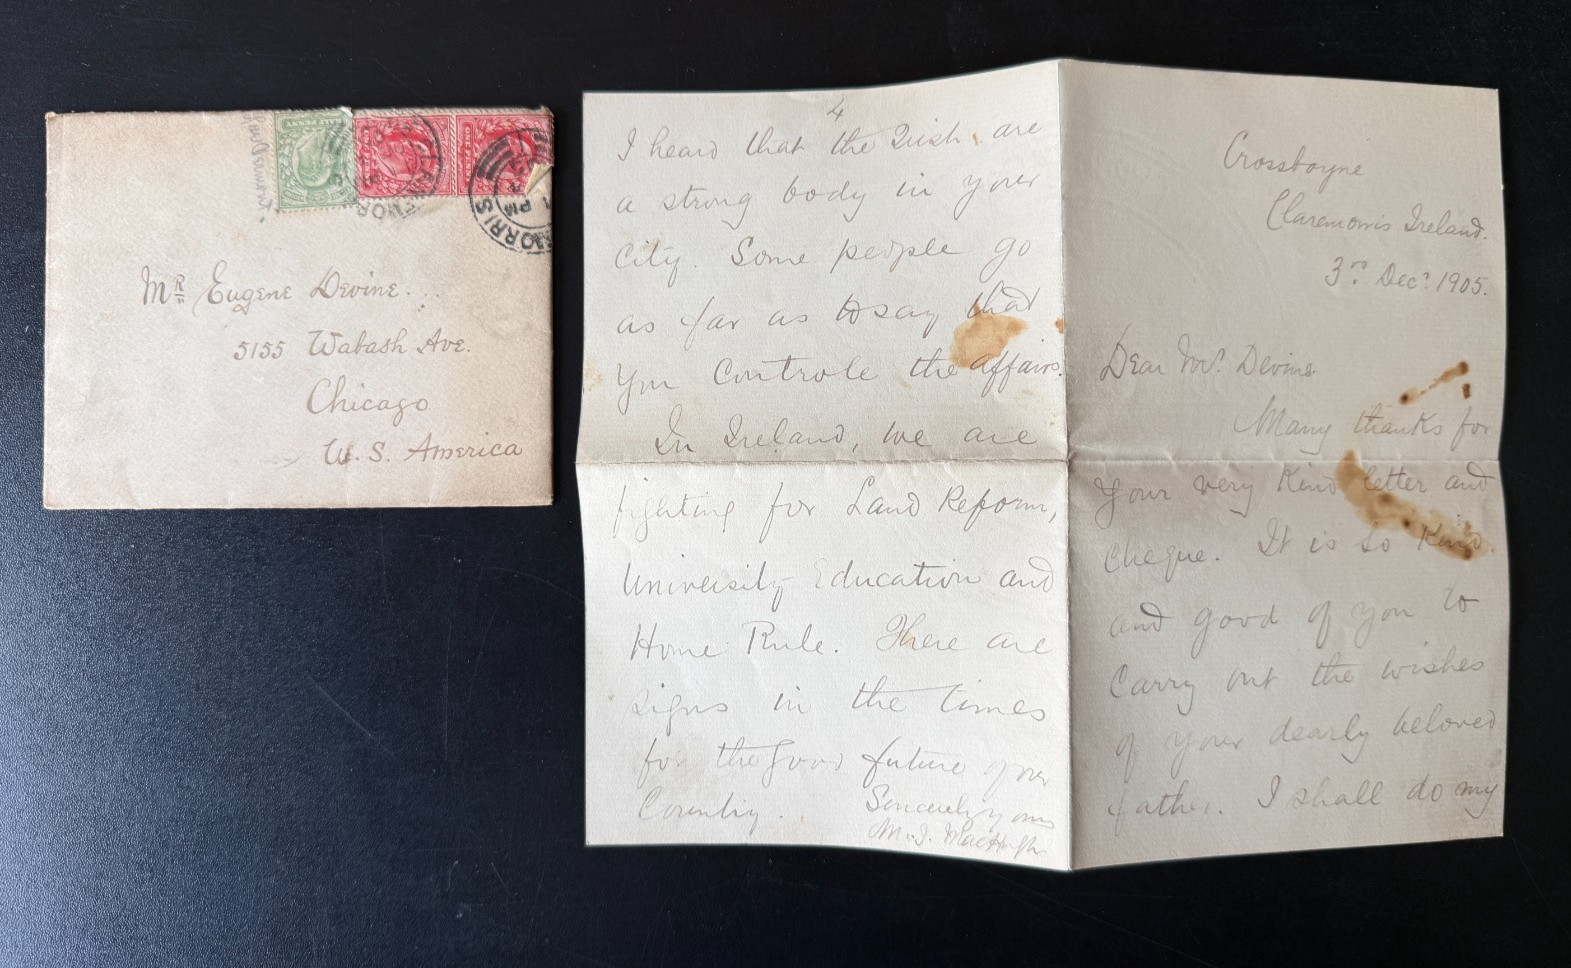 Mr Eugene Devine.
5155 Wabash Ave.
Chicago
U.S. America
HALF PENNY
MORRIS
1 PM
4
I heard that the Irish are
a strong body in your
City. Some people go
as far as to say that
you Controle the affairs.
In Ireland, we are
fighting for Land Reform,
University Education and
Home Rule. There are
signs in the times
for the good future of our
Country.
Sincerely yours
M. J. MacHugh
Crossboyne
Claremorris Ireland.
3rd Decr 1905.
Dear Mr. Devine
Many thanks for
your very Kind letter and
cheque. It is so Kind
and good of you to
Carry out the wishes
of your dearly beloved
father. I shall do my